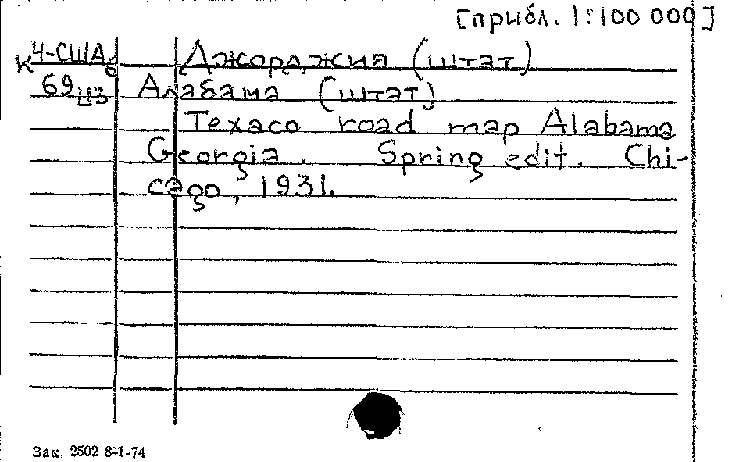 [прибл. 1:100 000]
К 4-США 6 Джорджия (штат)
69 Ш3 Алабама (штат)
Texaco road map Alabama
Georgia. Spring edit. Chi-
cago, 1931.
Зак. 2502 8-1-74